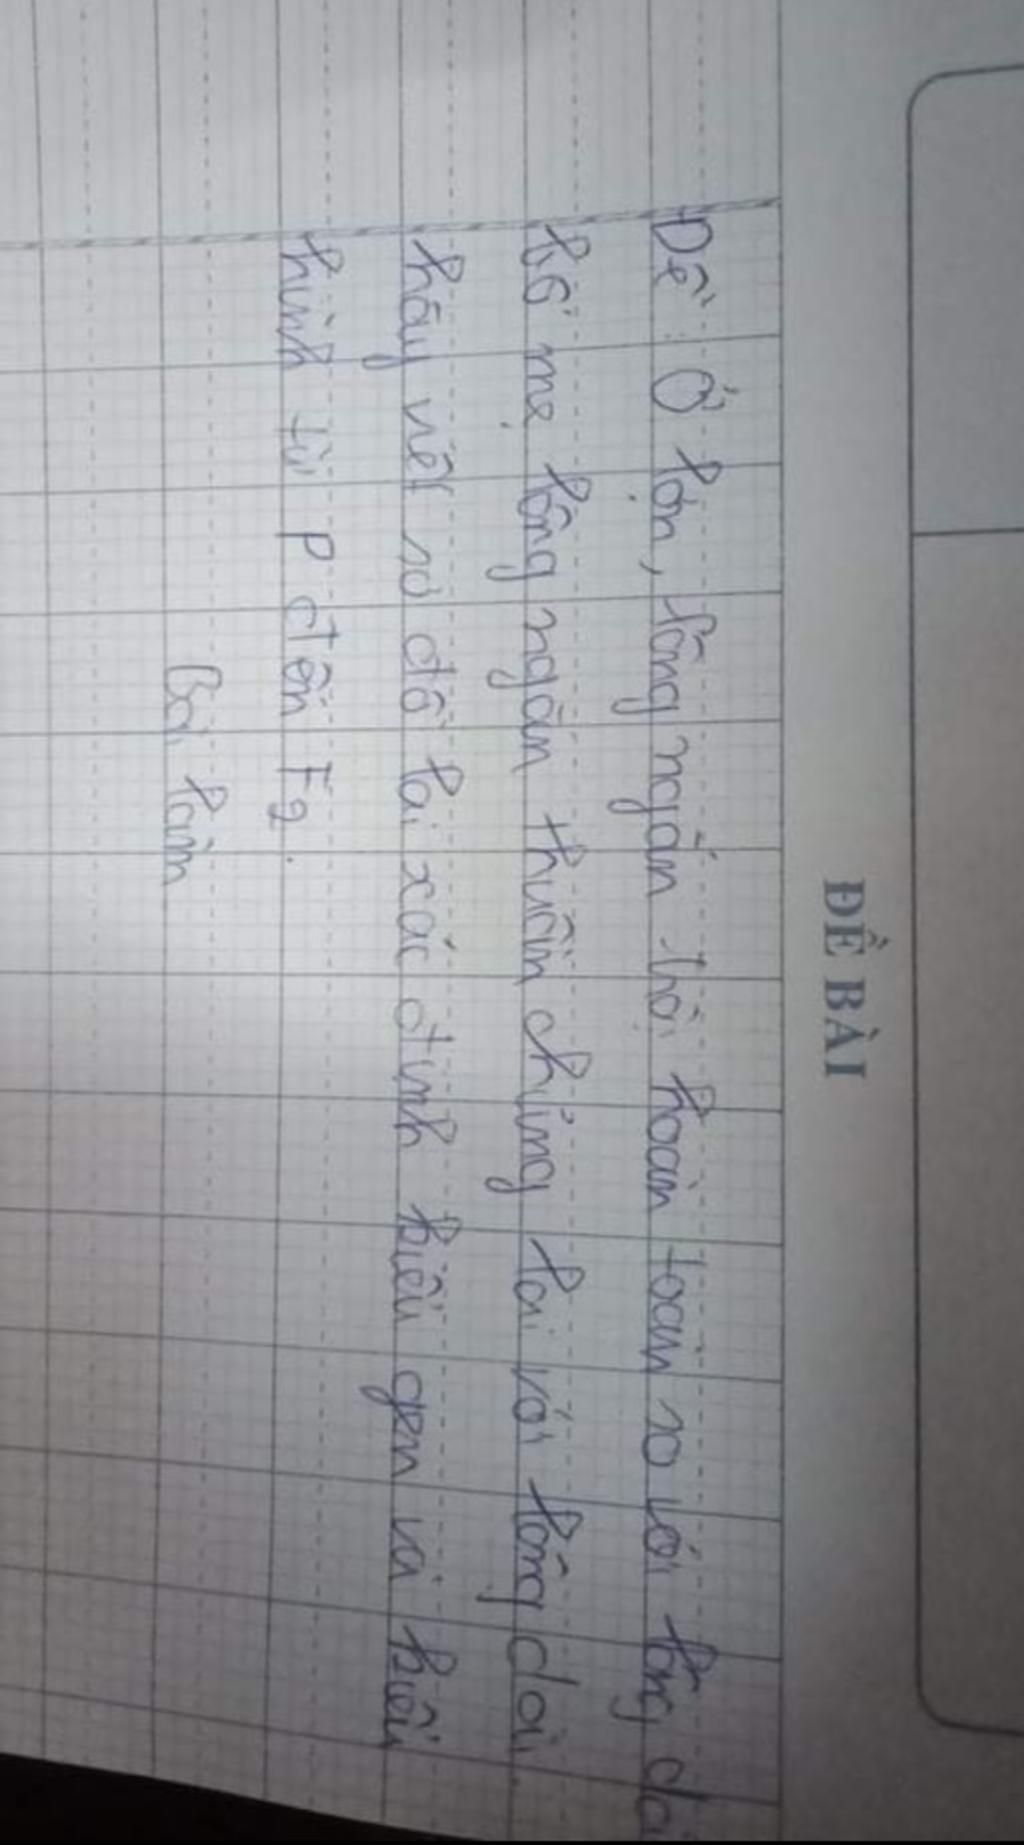 ĐỀ BÀI
Đề: Ở lợn, lông ngắn trội hoàn toàn so với lông dài
bố mẹ lông ngắn thuần chủng lai với lông dài.
hãy viết sơ đồ lai xác định kiểu gen và kiểu
hình từ P đến F2.
Bài làm